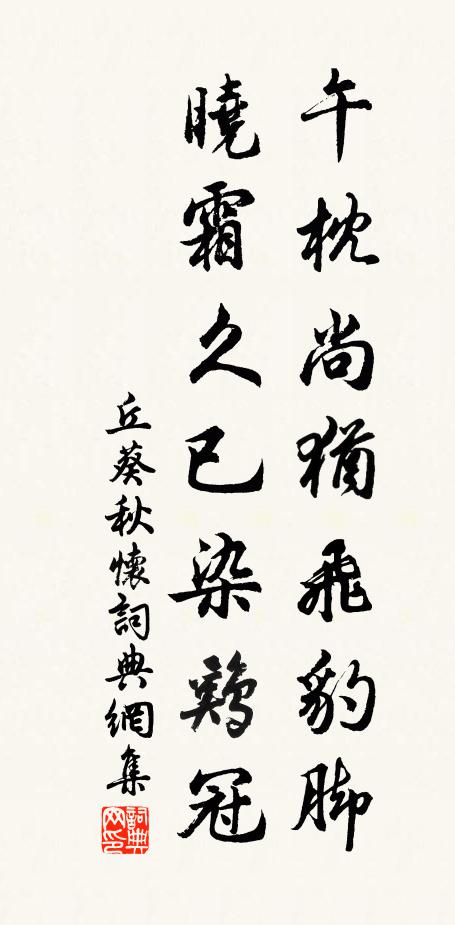 午枕尚猶飛豹脚
曉霜久已染鷄冠
丘葵秋懷詞典網集
詞典网印